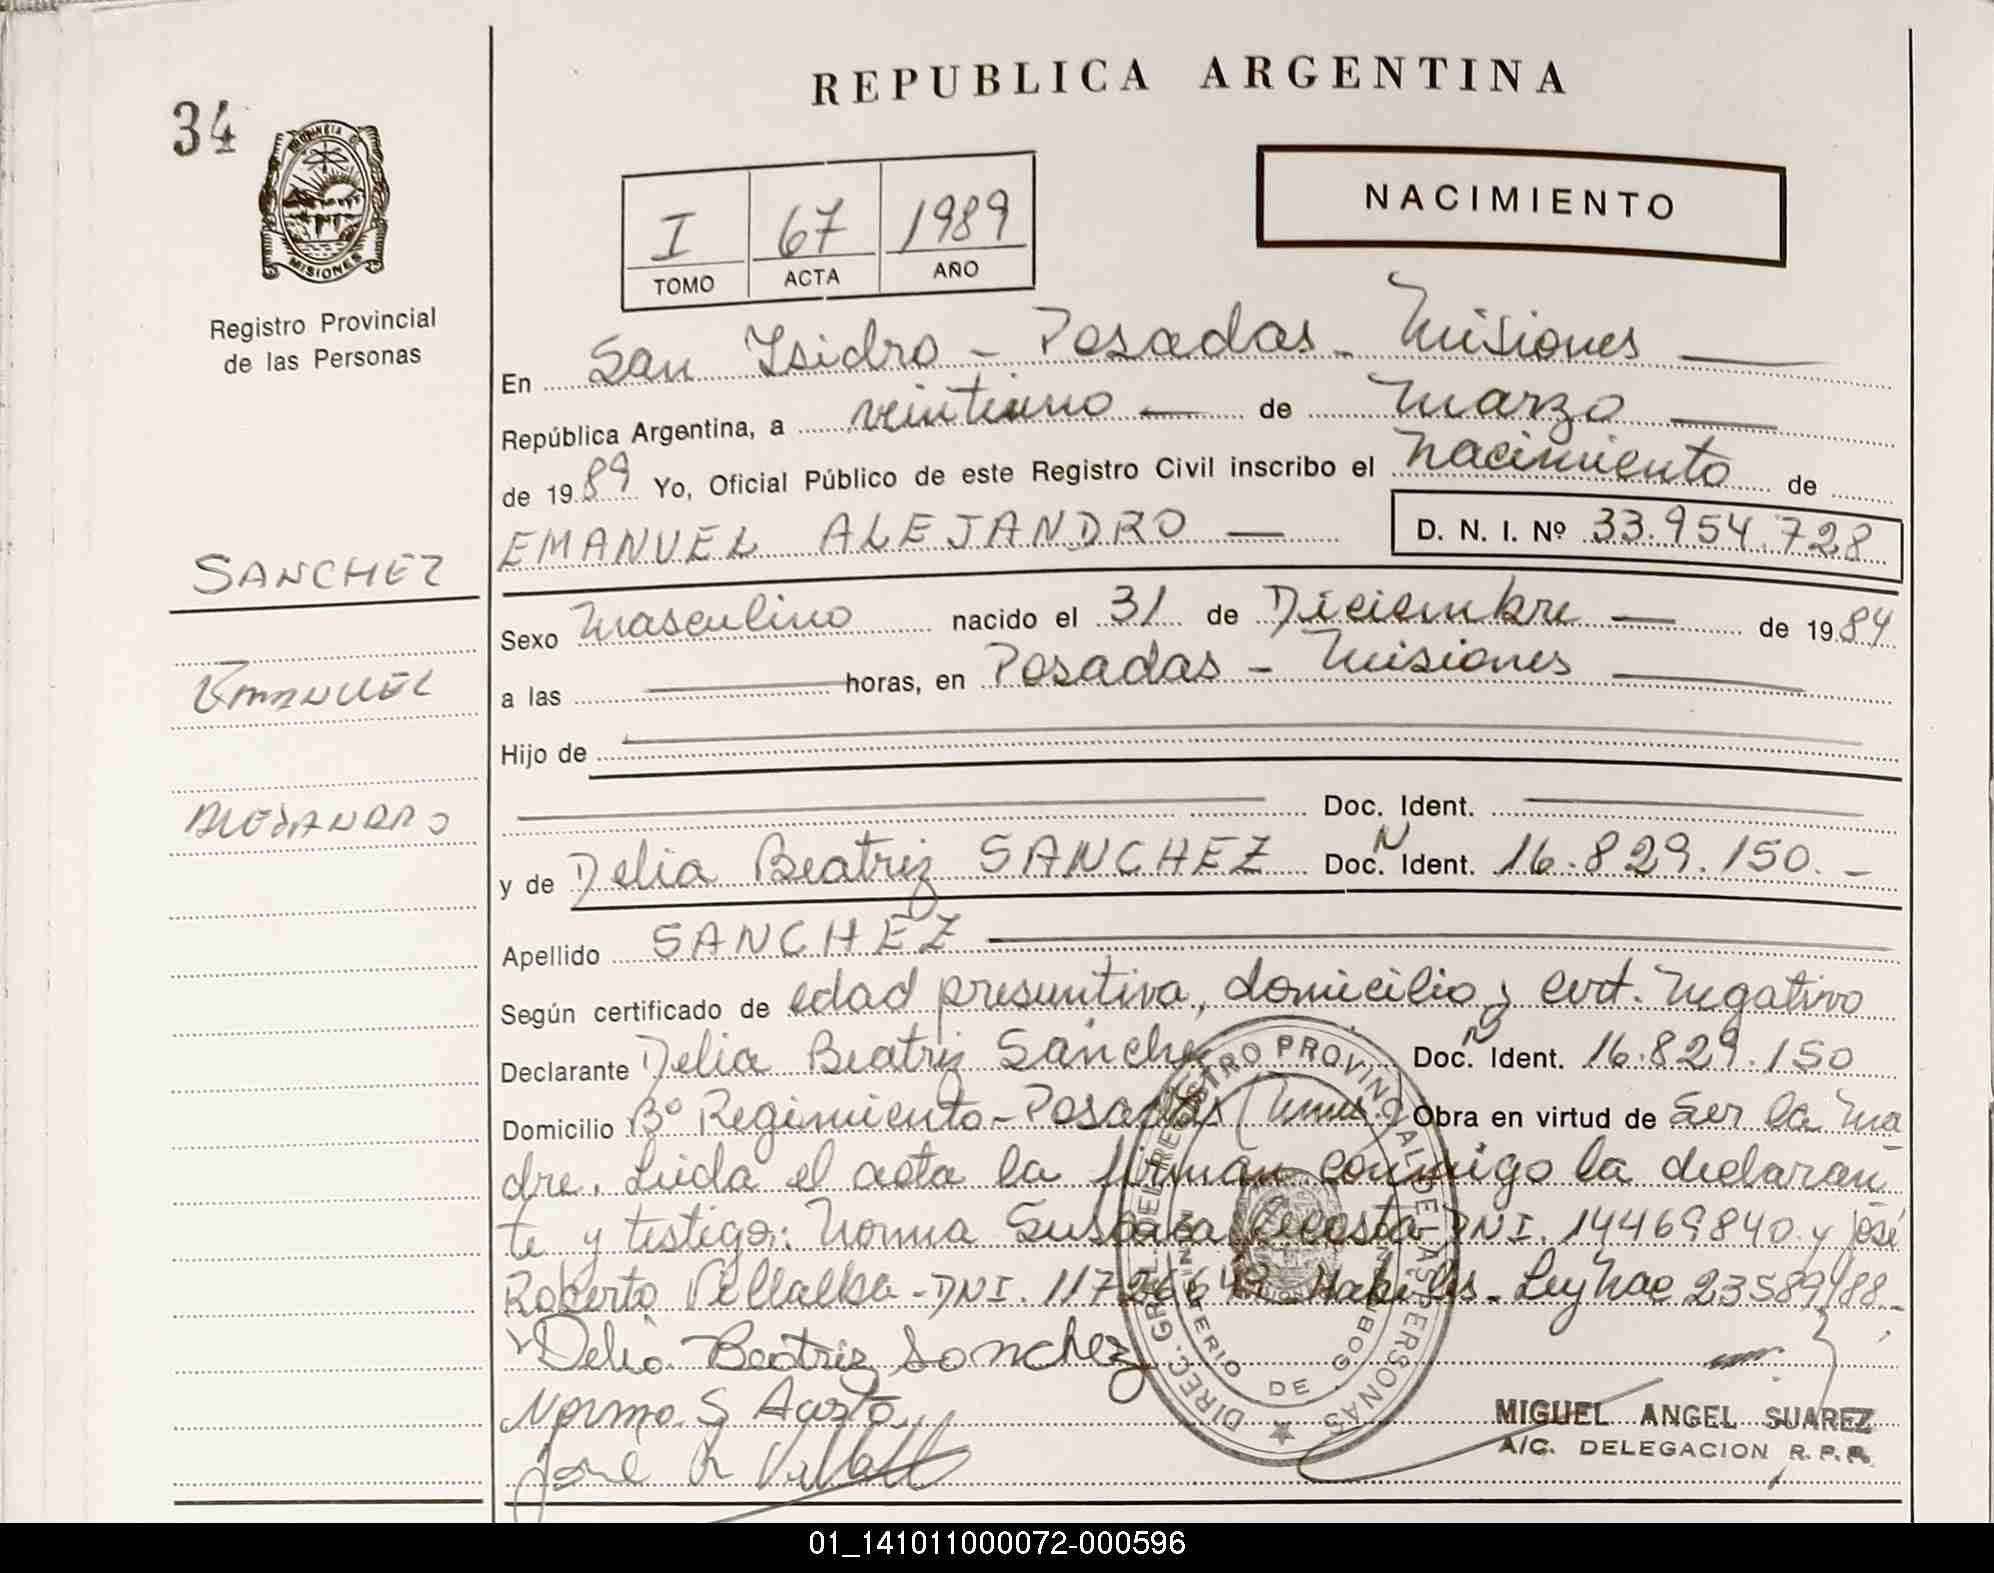 REPUBLICA ARGENTINA
34
PROVINCIA DE MISIONES
Registro Provincial
de las Personas
NACIMIENTO
I 67 1989
TOMO ACTA AÑO
En San Isidro - Posadas - Misiones
República Argentina, a veintiuno de Marzo
de 1989 Yo, Oficial Público de este Registro Civil inscribo el nacimiento de
EMANUEL ALEJANDRO D. N. I. Nº 33.954.728
SANCHEZ
EMANUEL
ALEJANDRO
Sexo Masculino nacido el 31 de Diciembre de 1984
a las horas, en Posadas - Misiones
Hijo de
Doc. Ident.
y de Delia Beatriz SANCHEZ Doc. N Ident. 16.829.150.-
Apellido SANCHEZ
Según certificado de edad presuntiva, domicilio y cert. Negativo
Declarante Delia Beatriz Sánchez Doc. N Ident. 16.829.150
Domicilio Bº Regimiento - Posadas (Mnes.) Obra en virtud de Ser la ma
dre. Leída el acta la firman conmigo la declaran
te y testigo: Norma Susana Acosta DNI. 14469840 y José
Roberto Villalba - DNI. Habiles - Ley Nac 23589/88.-
Delia Beatriz Sanchez
Norma S Acosta
José R Villalba
DIREC. GRAL. DEL REGISTRO PROVINCIAL DE LAS PERSONAS
MINISTERIO DE GOBIERNO
MIGUEL ANGEL SUAREZ
A/C. DELEGACION R.P.P.
01_141011000072-000596